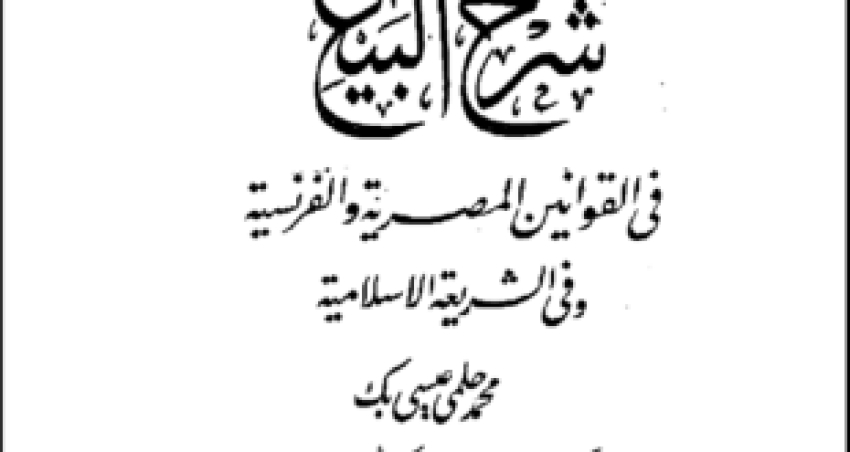 شرح البيع
في القوانين المصرية والفرنسية
وفي الشريعة الاسلامية
محمد حلمي عيسى بك